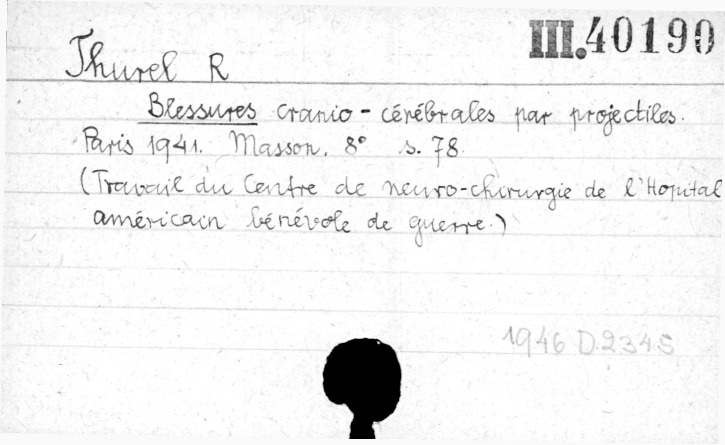 III.40190
Thurel R
Blessures cranio-cérébrales par projectiles.
Paris 1941. Masson. 8° s. 78.
(Travail du Centre de neuro-chirurgie de l'Hopital
américain bénévole de guerre.)
1946 D.2345